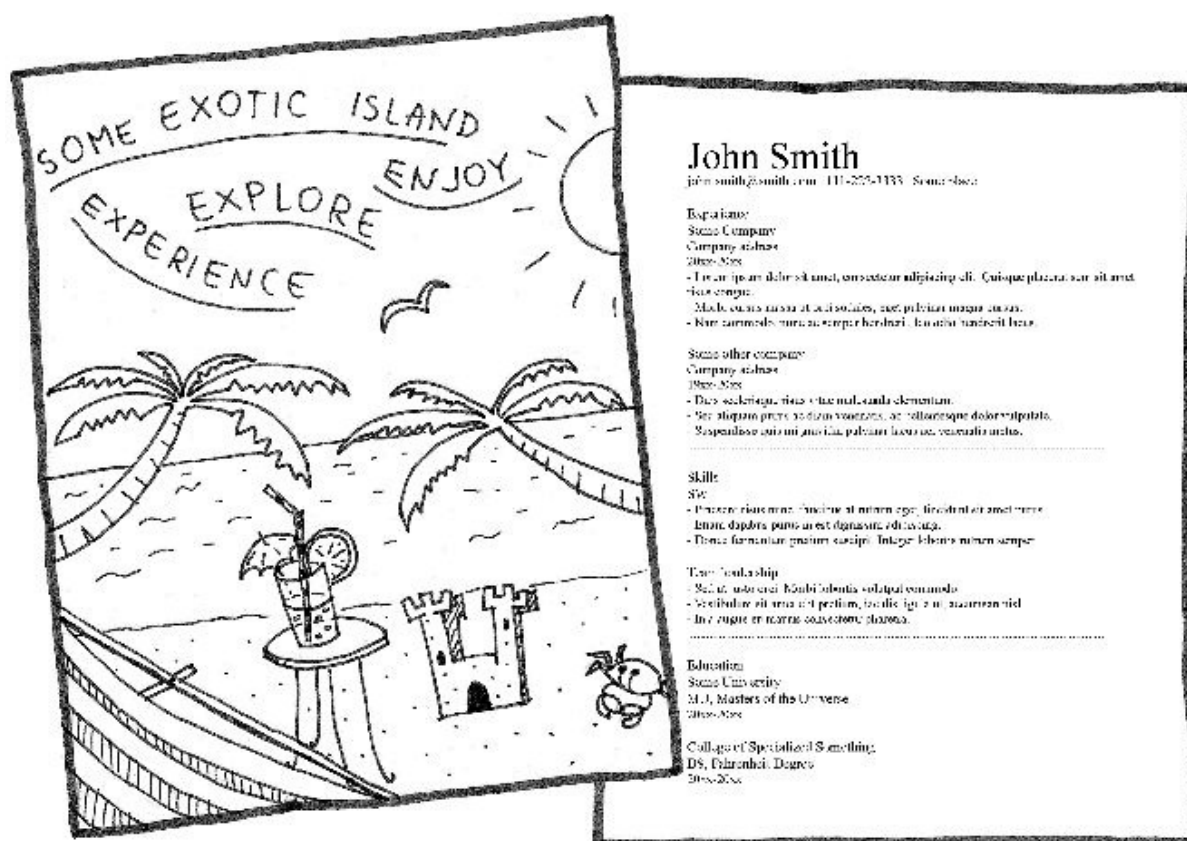 SOME EXOTIC ISLAND
ENJOY
EXPLORE
EXPERIENCE
John Smith
Experience
Some Company
Company address
20xx-20xx
- Lorem ipsum dolor sit amet, consectetur adipiscing elit. Quisque placerat sem sit amet
risus congue.
Morbi cursus massa ut orci sodales, eget pulvinar magna cursus.
- Nam commodo nunc ac semper hendrerit, leo odio hendrerit lacus.
Some other company
Company address
19xx-20xx
- Duis scelerisque risus vitae malesuada elementum.
- Sed aliquam purus ac diam venenatis, ac pellentesque dolor vulputate.
Suspendisse quis mi gravida, pulvinar lacus
Skills
SW
- Praesent risus nunc, faucibus at rutrum eget, tincidunt sit amet purus
Etiam dapibus purus in est dignissim adipiscing.
- Donec fermentum pretium suscipit. Integer lobortis rutrum semper
Team leadership
- Sed Morbi lobortis volutpat commodo
- Vestibulum sit amet elit pretium, iaculis ligula ut, accumsan nisl
- In augue et mattis consectetur pharetra.
Education
Some University
Masters of the Universe
20xx-20xx
College of Specialized Something
Fahrenheit Degree
20xx-20xx